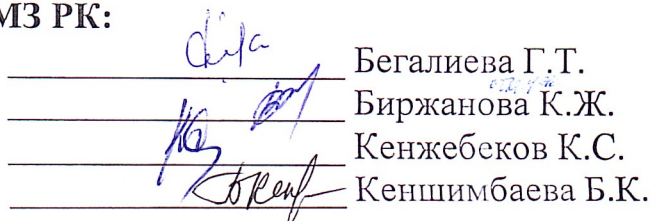 МЗ РК:
Бегалиева Г.Т.
Биржанова К.Ж.
Кенжебеков К.С.
Кеншимбаева Б.К.